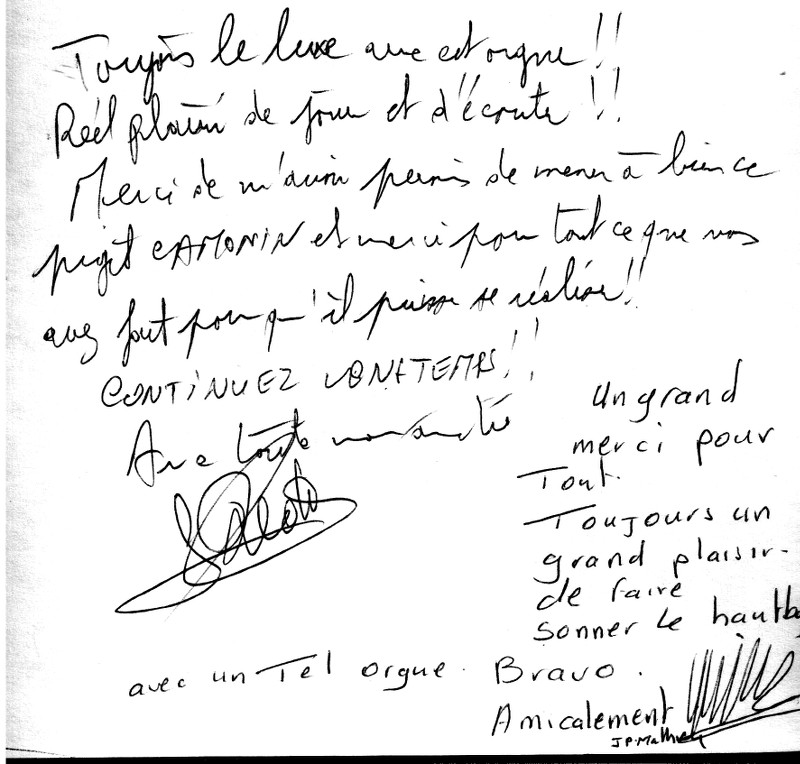 Toujours le luxe avec cet orgue !!
Réel plaisir de jouer et d'écoute !!
Merci de m'avoir permis de mener à bien ce
projet CAMONIN et merci pour tout ce que vous
avez fait pour qu'il puisse se réaliser !!
CONTINUEZ LONGTEMPS !!
Avec toute mon amitié
Un grand
merci pour
Tout.
Toujours un
grand plaisir
de faire
sonner le hautb
avec un Tel orgue. Bravo.
Amicalement
JP. Mathieu